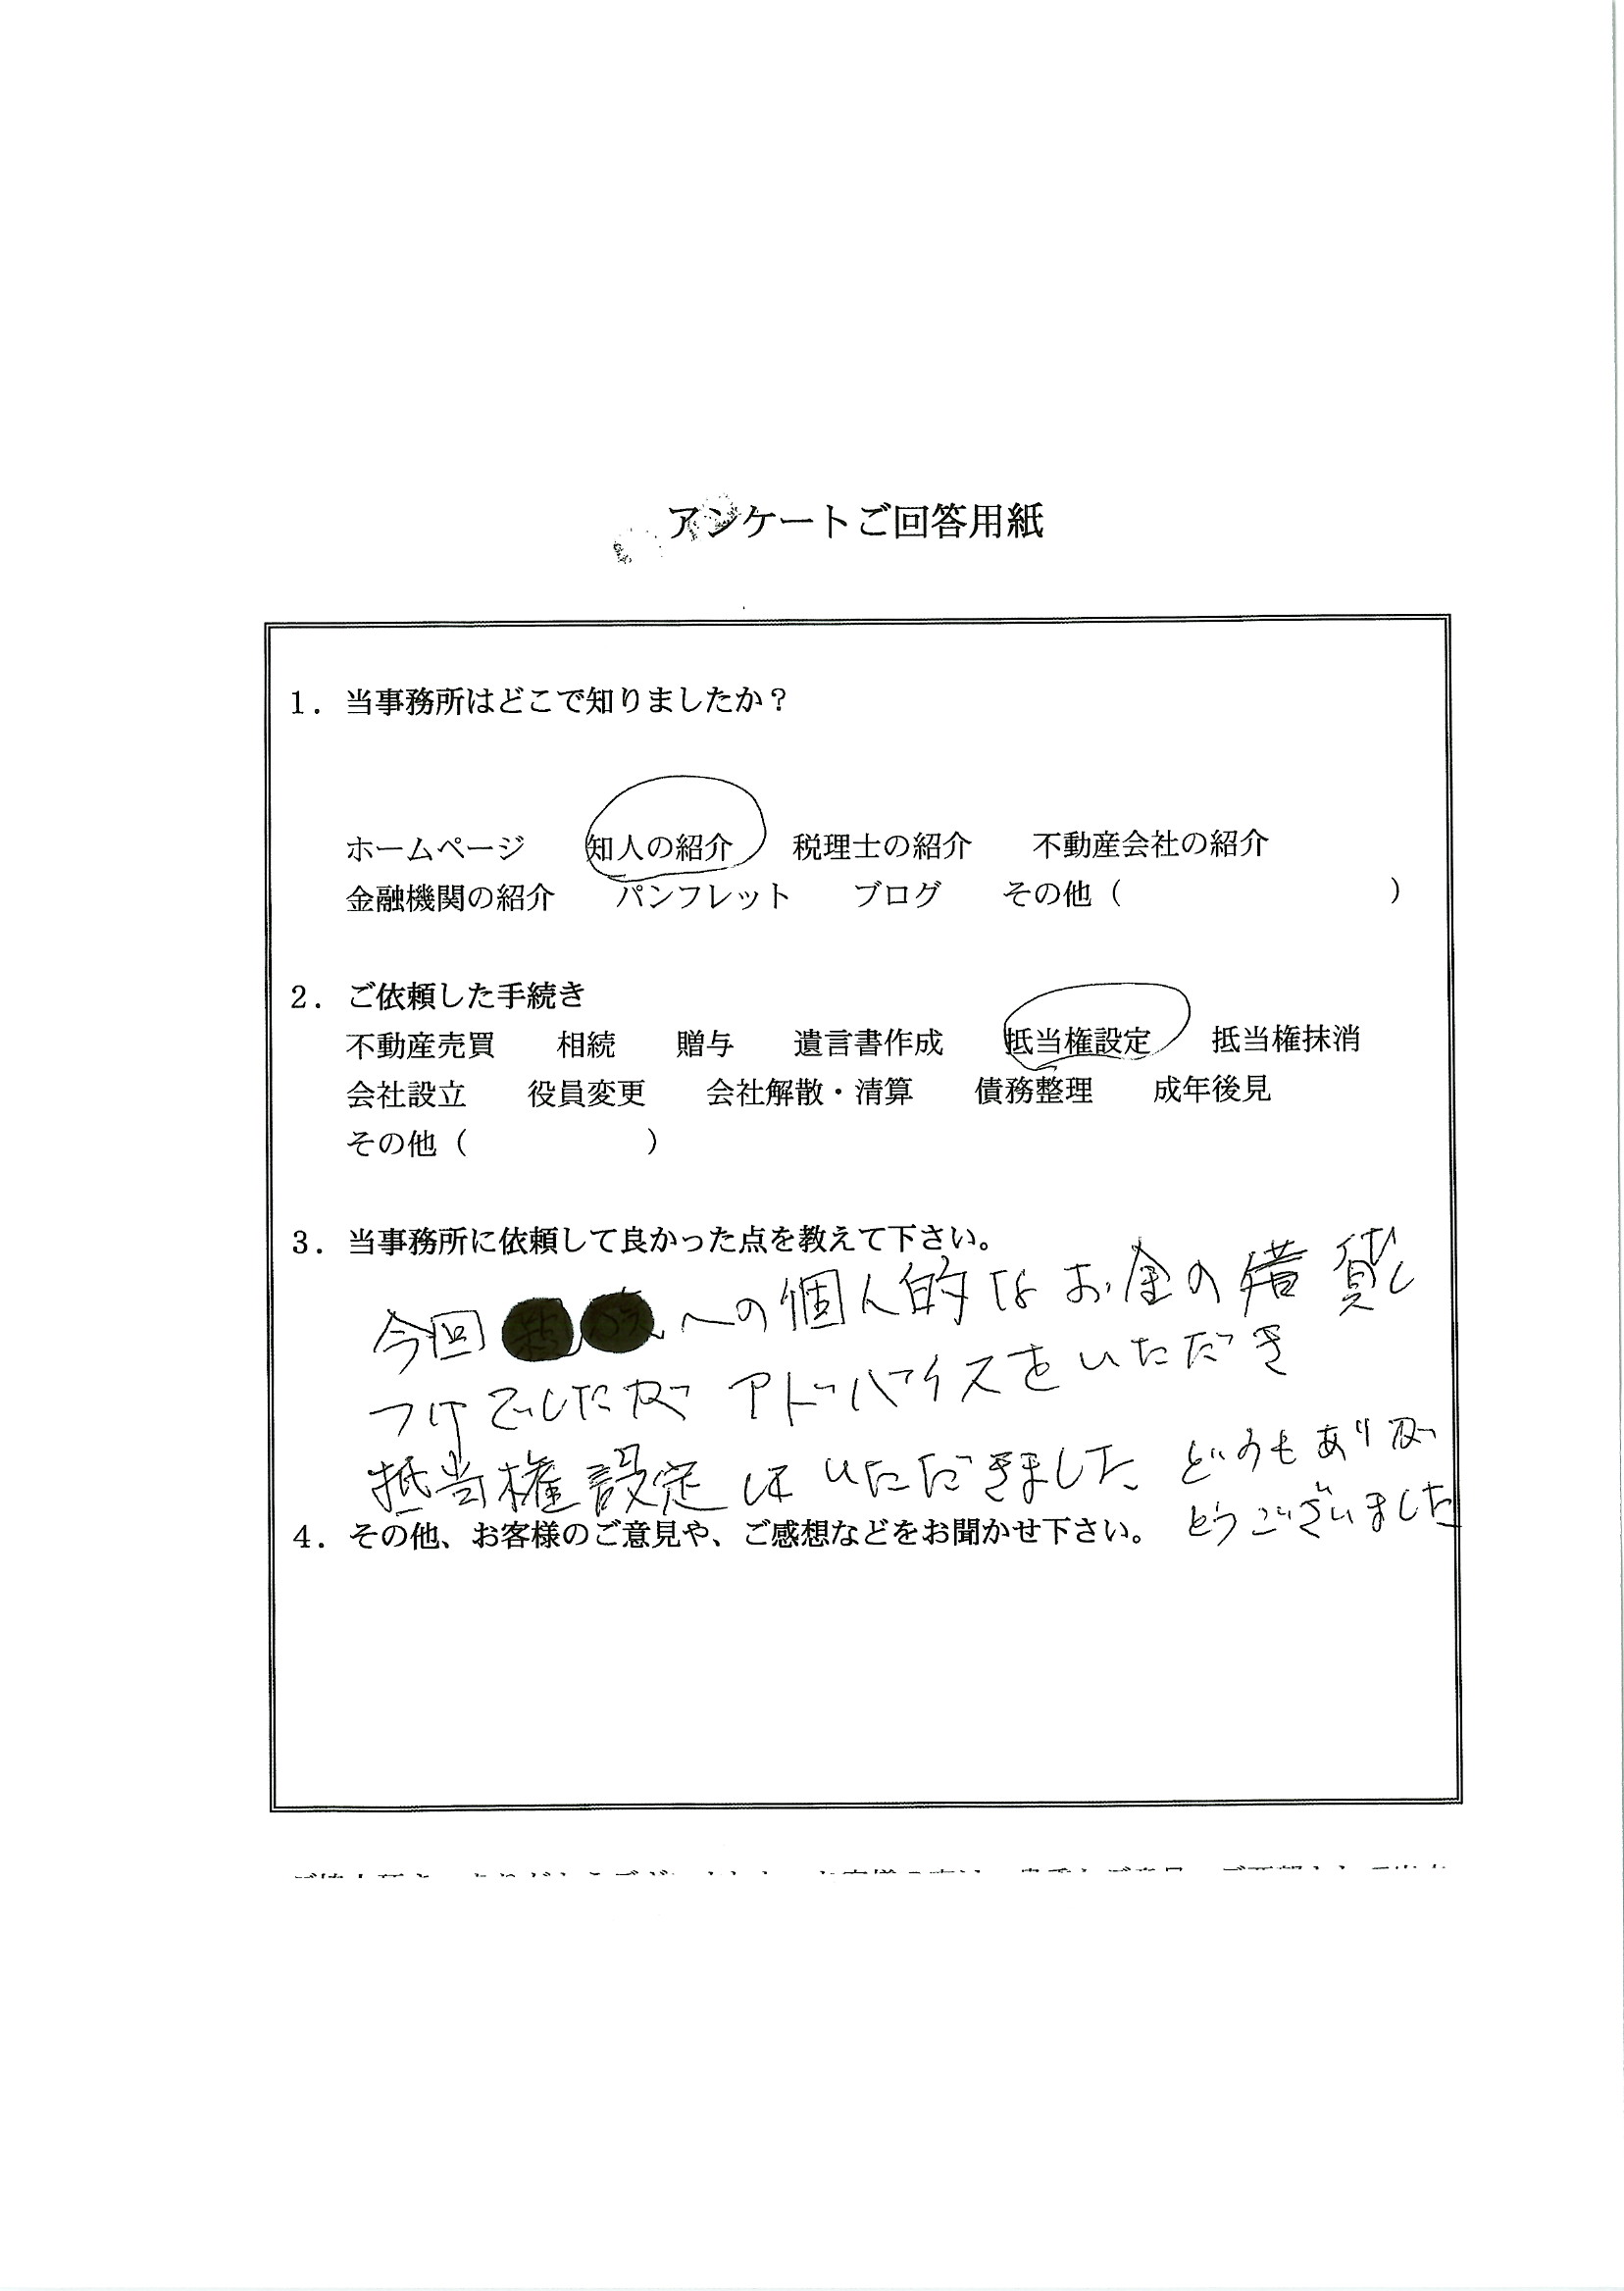 アンケートご回答用紙
1．当事務所はどこで知りましたか？
ホームページ　知人の紹介　税理士の紹介　不動産会社の紹介
金融機関の紹介　パンフレット　ブログ　その他（　　　　　）
2．ご依頼した手続き
不動産売買　相続　贈与　遺言書作成　抵当権設定　抵当権抹消
会社設立　役員変更　会社解散・清算　債務整理　成年後見
その他（　　　　　）
3．当事務所に依頼して良かった点を教えて下さい。
今回 への個人的なお金の借貸し
つけでしたが アドバイスをいただき
抵当権設定 いただきました どうもありが
とうございました
4．その他、お客様のご意見や、ご感想などをお聞かせ下さい。